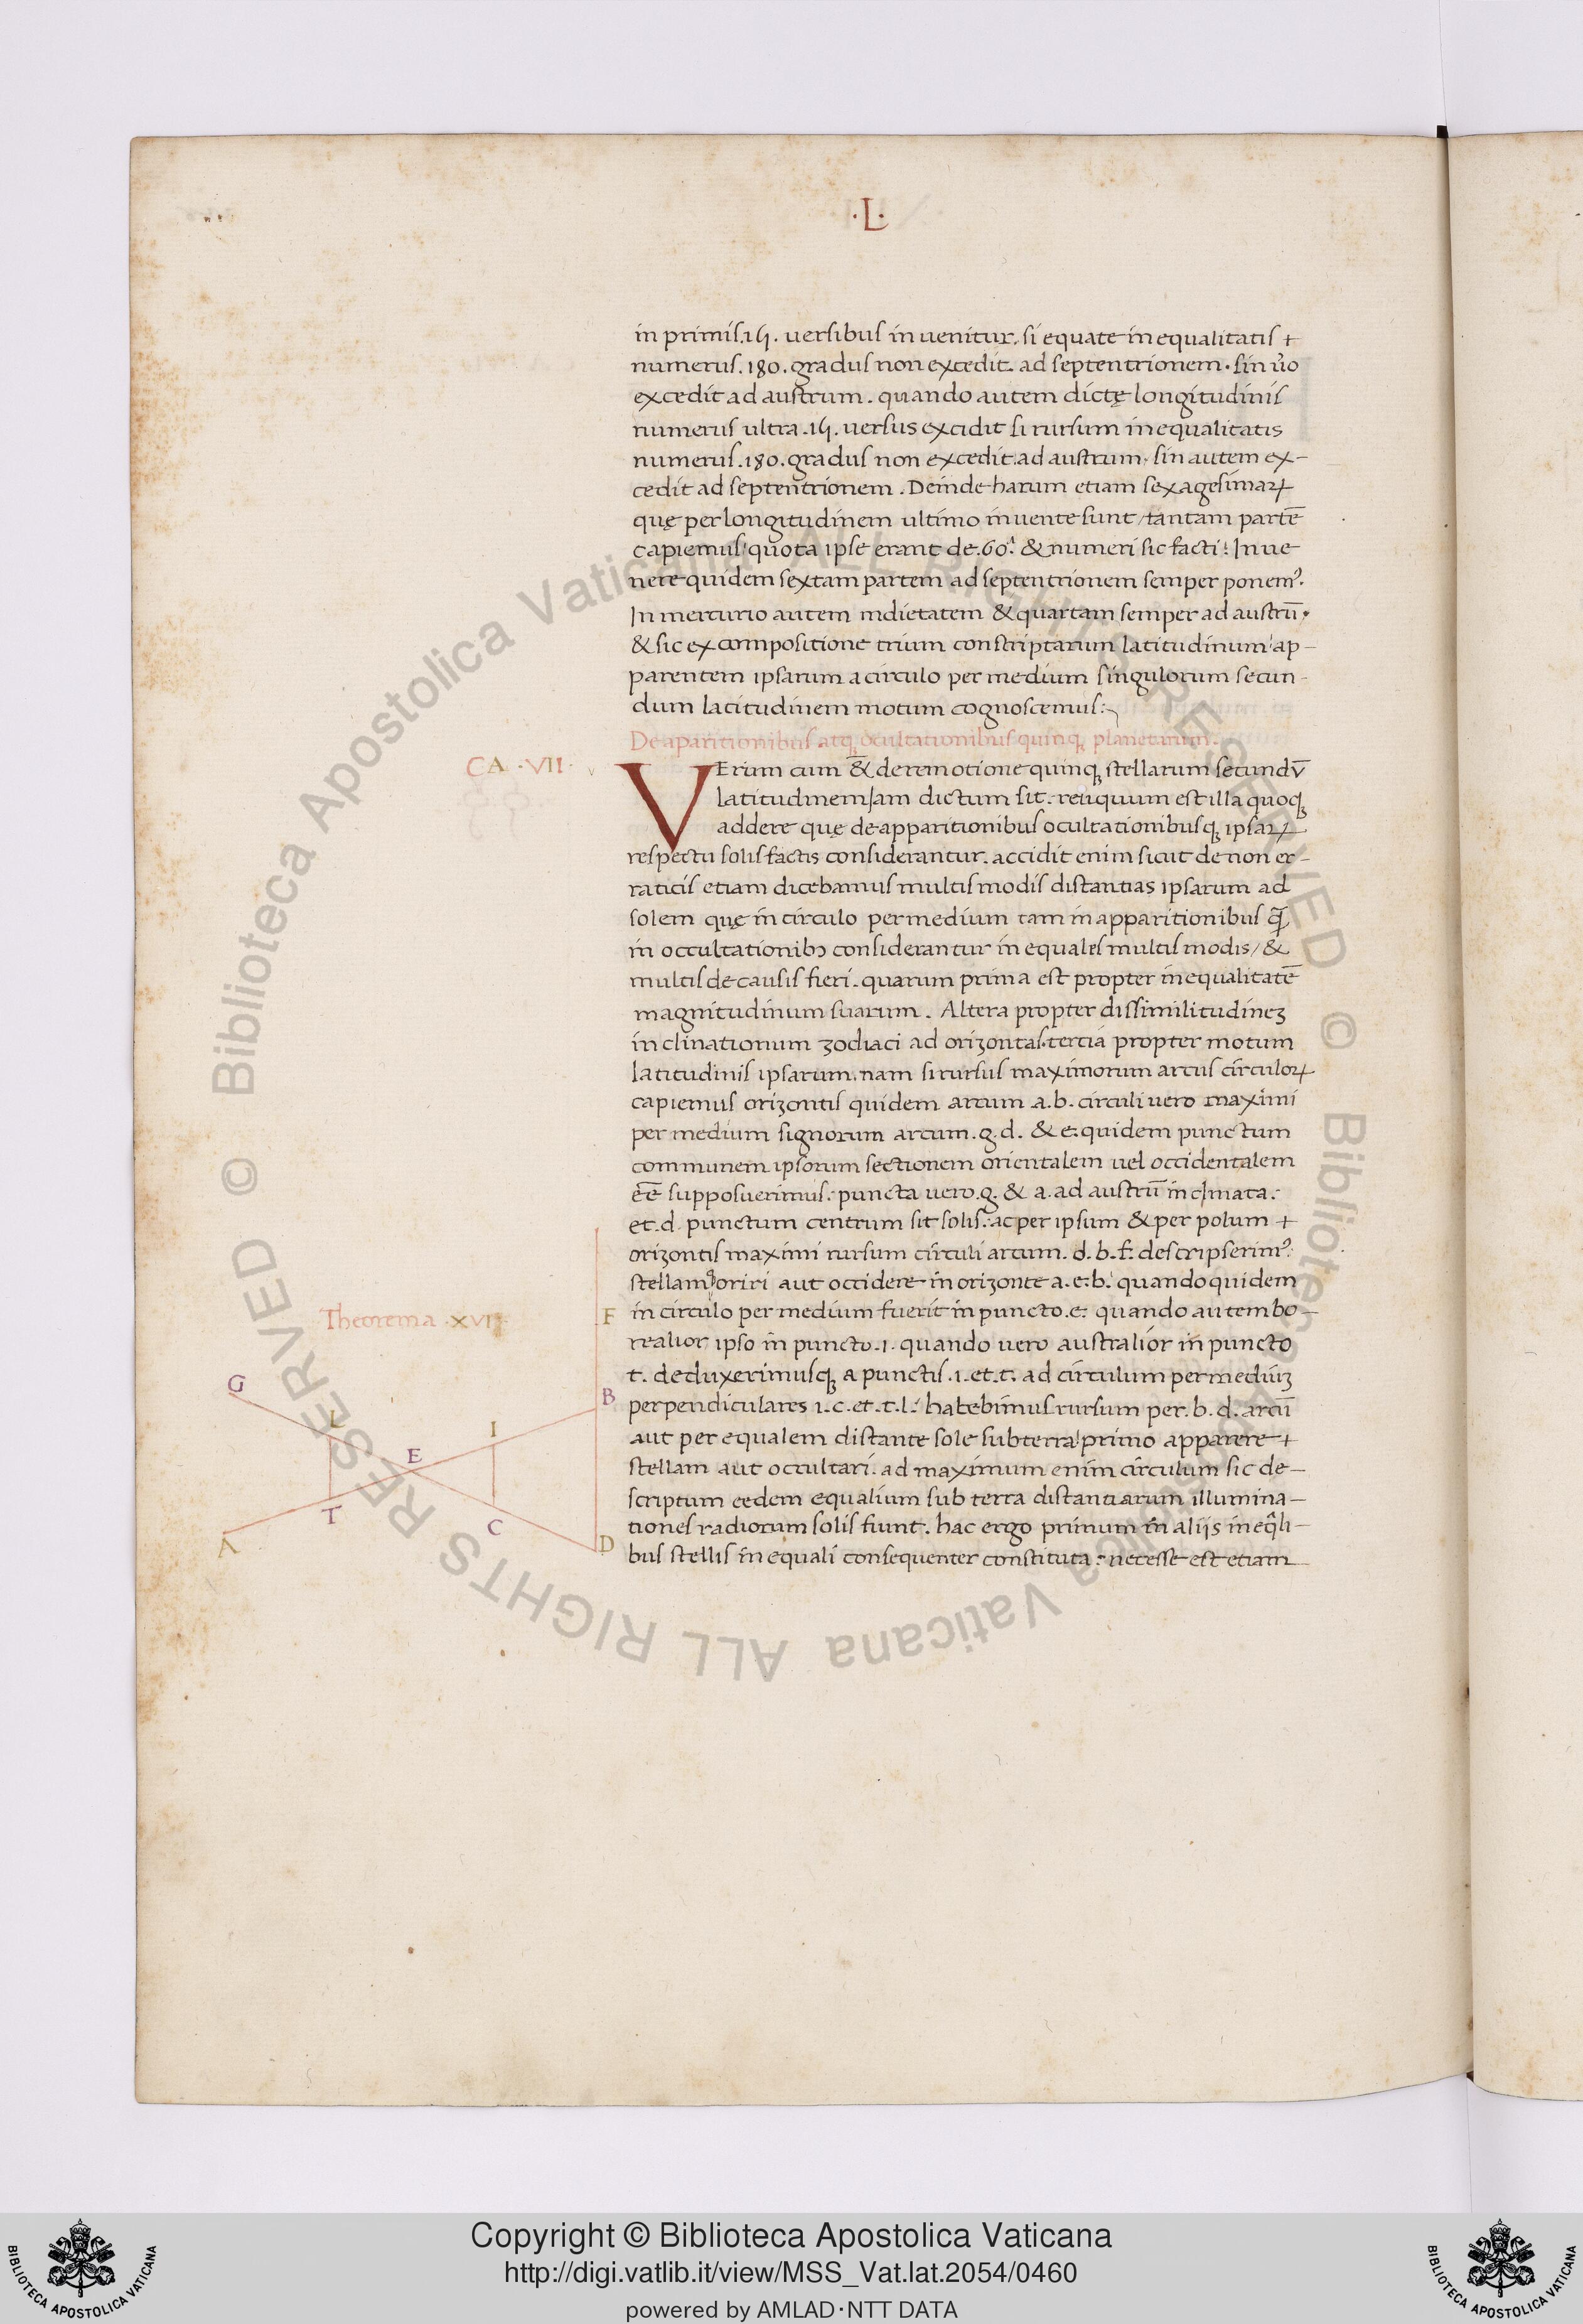 ·L·
in primis .15. versibus invenitur. si equate inequalitatis +
numerus .180. gradus non excedit ad septentrionem. sin ũo
excedit ad austrum. quando autem dictę longitudinis
numerus ultra .15. versus excidit si rursum inequalitatis
numerus .180. gradus non excedit. ad austrum. sin autem ex-
cedit ad septentrionem. Deinde harum etiam sexagesimaꝝ
quę per longitudinem ultimo invente sunt/tantam partē
capiemus quota ipse erant de .60. & numeri sic facti: In ve
nere quidem sextam partem ad septentrionem semper ponemꝰ.
In mercurio autem mdietatem & quartam semper ad austrū.
& sic ex compositione trium conscriptarum latitudinum ap-
parentem ipsarum a circulo per medium singulorum secun-
dum latitudinem motum cognoscemus:
De aparitionibus atqꝫ ocultationibus quinqꝫ planetarum.
CA·VII·
VErum cum & de remotione quinqꝫ stellarum secundū
latitudinem Jam dictum sit. reliquum est illa quoqꝫ
addere quę de apparitionibus ocultationibusqꝫ ipsaꝝ
respectu solis factis considerantur. accidit enim sicut de non er-
raticis etiam dicebamus multis modis distantias ipsarum ad
solem quę in circulo per medium tam in apparitionibus ꝙ̃
in occultationibꝰ considerantur inequales multis modis/&
multis de causis fieri. quarum prima est propter inequalitatē
magnitudinum suarum. Altera propter dissimilitudineꝫ
inclinationum zodiaci ad orizontas. tertia propter motum
latitudinis ipsarum. nam si rursus maximorum arcus circuloꝝ
capiemus orizontis quidem arcum .a.b. circuli vero maximi
per medium signorum arcum .g.d. & e. quidem punctum
communem ipsorum sectionem orientalem vel occidentalem
eē̃ supposuerimus: puncta vero .g. & a. ad austrū inclinata:
et .d. punctum centrum sit solis: ac per ipsum & per polum +
orizontis maximi rursum circuli arcum. d.b.f. descripserimꝰ.
stellamqꝫ oriri aut occidere in orizonte a.e.b. quando quidem
in circulo per medium fuerit in puncto .e. quando autem bo-
realior ipso in puncto .i. quando vero australior in puncto
t. deduxerimusqꝫ a punctis .i. et .t. ad circulum per mediūꝫ
perpendiculares i.c. et .t.l. habebimus rursum per .b.d. arcū
aut per equalem distante sole sub terra primo apparere +
stellam aut occultari. ad maximum enim circulum sic de-
scriptum eedem equalium sub terra distantiarum illumina-
tiones radiorum solis fiunt. hac ergo primum in aliis ineq̃li-
bus stellis in equali consequenter constituta: necesse est etiam
Theorema ·XVI
F
G
B
L
I
E
T
C
A
D
© Biblioteca Apostolica Vaticana ALL RIGHTS RESERVED © Biblioteca Apostolica Vaticana ALL RIGHTS RESERVED
Copyright © Biblioteca Apostolica Vaticana
http://digi.vatlib.it/view/MSS_Vat.lat.2054/0460
powered by AMLAD·NTT DATA
BIBLIOTECA APOSTOLICA VATICANA
BIBLIOTECA APOSTOLICA VATICANA